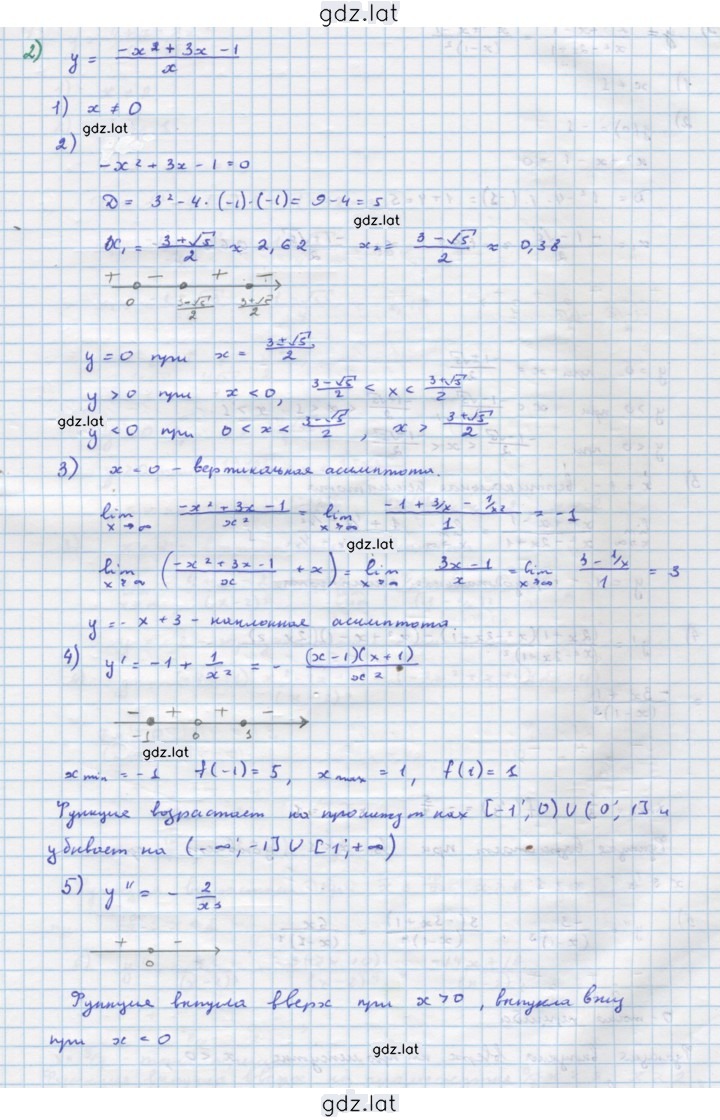 gdz.lat
2) y = (-x² + 3x - 1)/x
1) x ≠ 0
gdz.lat
2)
-x² + 3x - 1 = 0
D = 3² - 4 · (-1) · (-1) = 9 - 4 = 5
gdz.lat
x₁ = (3+√5)/2 ≈ 2,62 x₂ = (3-√5)/2 ≈ 0,38
+ - + -
0 (3-√5)/2 (3+√5)/2
y = 0 при x = (3±√5)/2
y > 0 при x < 0, (3-√5)/2 < x < (3+√5)/2
gdz.lat
y < 0 при 0 < x < (3-√5)/2 , x > (3+√5)/2
3) x = 0 - вертикальная асимптота.
lim x→∞ (-x² + 3x - 1)/x² = lim x→∞ (-1 + 3/x - 1/x²)/1 = -1
gdz.lat
lim x→∞ ((-x² + 3x - 1)/x + x) = lim x→∞ (3x - 1)/x = lim x→∞ (3 - 1/x)/1 = 3
y = -x + 3 - наклонная асимптота.
4) y' = -1 + 1/x² = - (x-1)(x+1)/x²
- + + -
-1 0 1
gdz.lat
xmin = -1 f(-1) = 5, xmax = 1, f(1) = 1
Функция возрастает на промежутках [-1; 0) ∪ (0; 1] и
убывает на (-∞; -1] ∪ [1; +∞)
5) y'' = - 2/x³
+ -
0
Функция выпукла вверх при x > 0, выпукла вниз
при x < 0
gdz.lat
gdz.lat